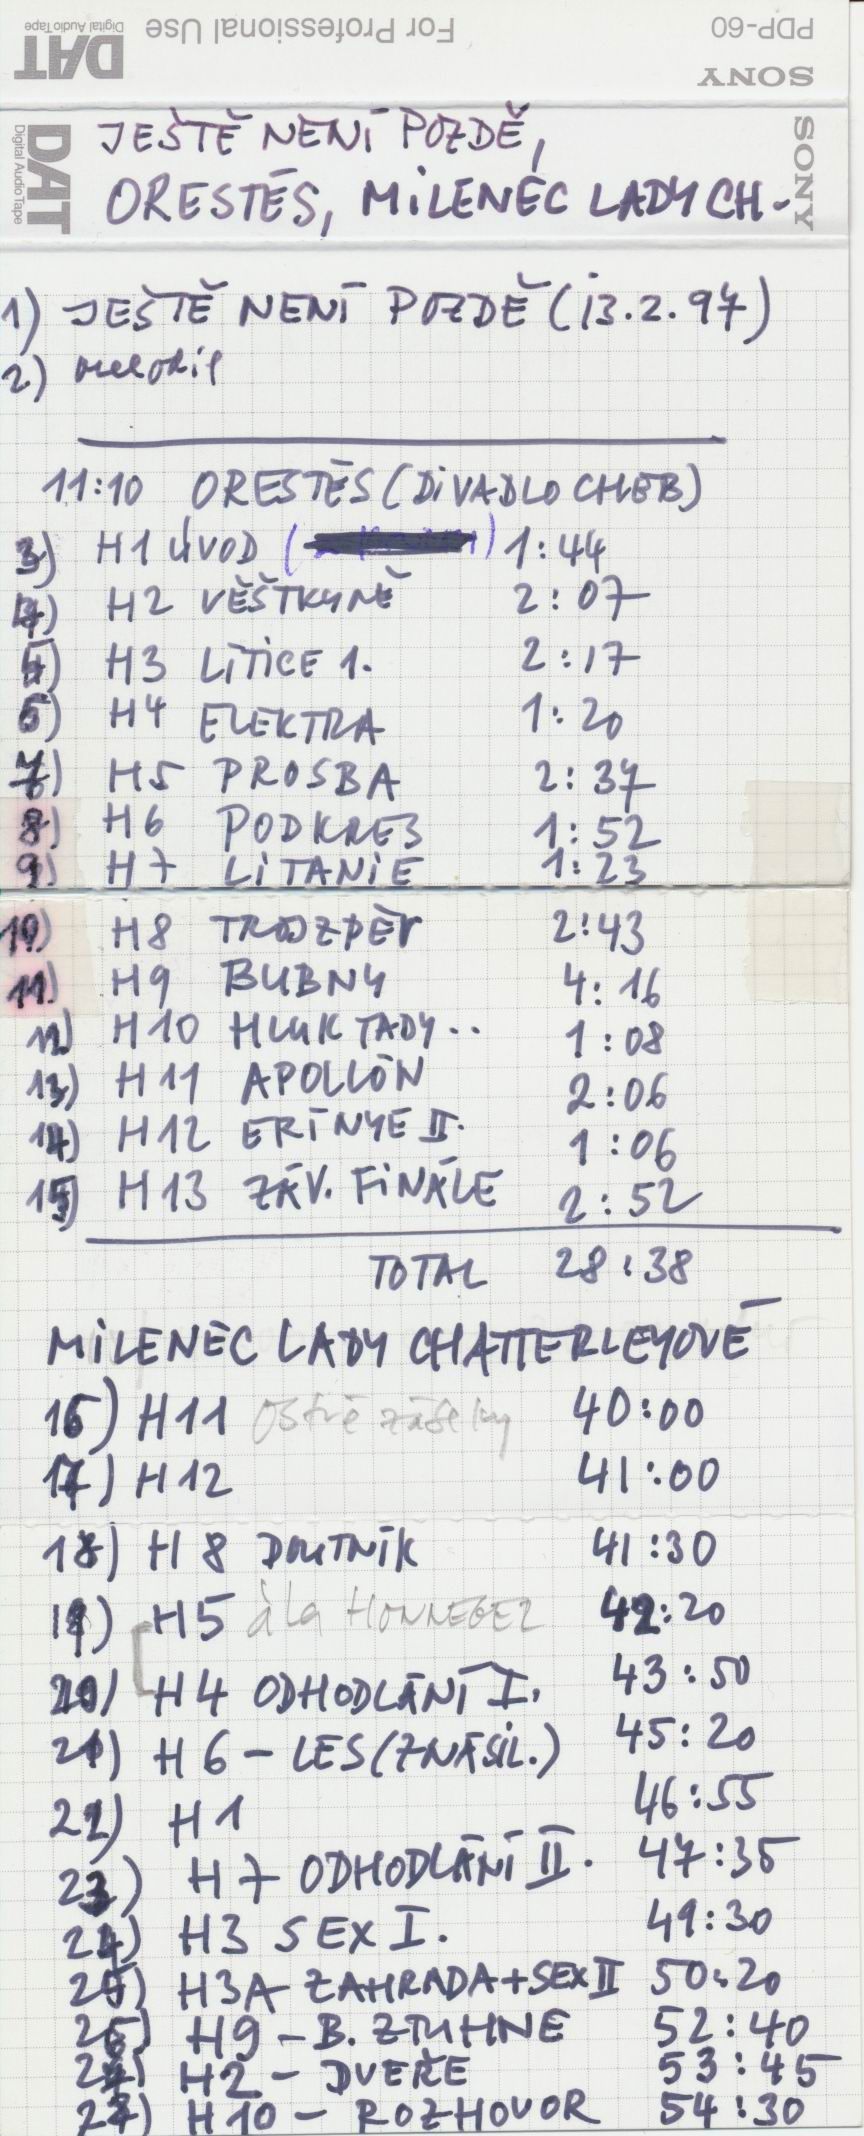 PDP-60 For Professional Use DAT
SONY Digital Audio Tape
DAT Digital Audio Tape SONY
JEŠTĚ NENÍ POZDĚ,
ORESTÉS, MILENEC LADY CH-
1) JEŠTĚ NENÍ POZDĚ (13.2.97)
2) melodie
11:10 ORESTÉS (DIVADLO CHEB)
3) H1 ÚVOD ( ) 1:44
4) H2 VĚŠTKYNĚ 2:07
5) H3 LÍTICE 1. 2:17
6) H4 ELEKTRA 1:20
7) H5 PROSBA 2:37
8) H6 PODKRES 1:52
9) H7 LITANIE 1:23
10) H8 TROJZPĚV 2:43
11) H9 BUBNY 4:16
12) H10 HLUK TADY.. 1:08
13) H11 APOLLÓN 2:06
14) H12 ERÍNYE II. 1:06
15) H13 ZÁV. FINÁLE 2:52
TOTAL 28:38
MILENEC LADY CHATTERLEYOVÉ
16) H11 ostré záseky 40:00
17) H12 41:00
18) H8 DOUTNÍK 41:30
19) H5 à la HONNEGER 42:20
20) H4 ODHODLÁNÍ I. 43:50
21) H6 - LES (ZNÁSIL.) 45:20
22) H1 46:55
23) H7 ODHODLÁNÍ II. 47:35
24) H3 SEX I. 49:30
25) H3A ZAHRADA+SEX II 50:20
26) H9 - B. ZTUHNE 52:40
H2 - DVEŘE 53:45
H10 - ROZHOVOR 54:30